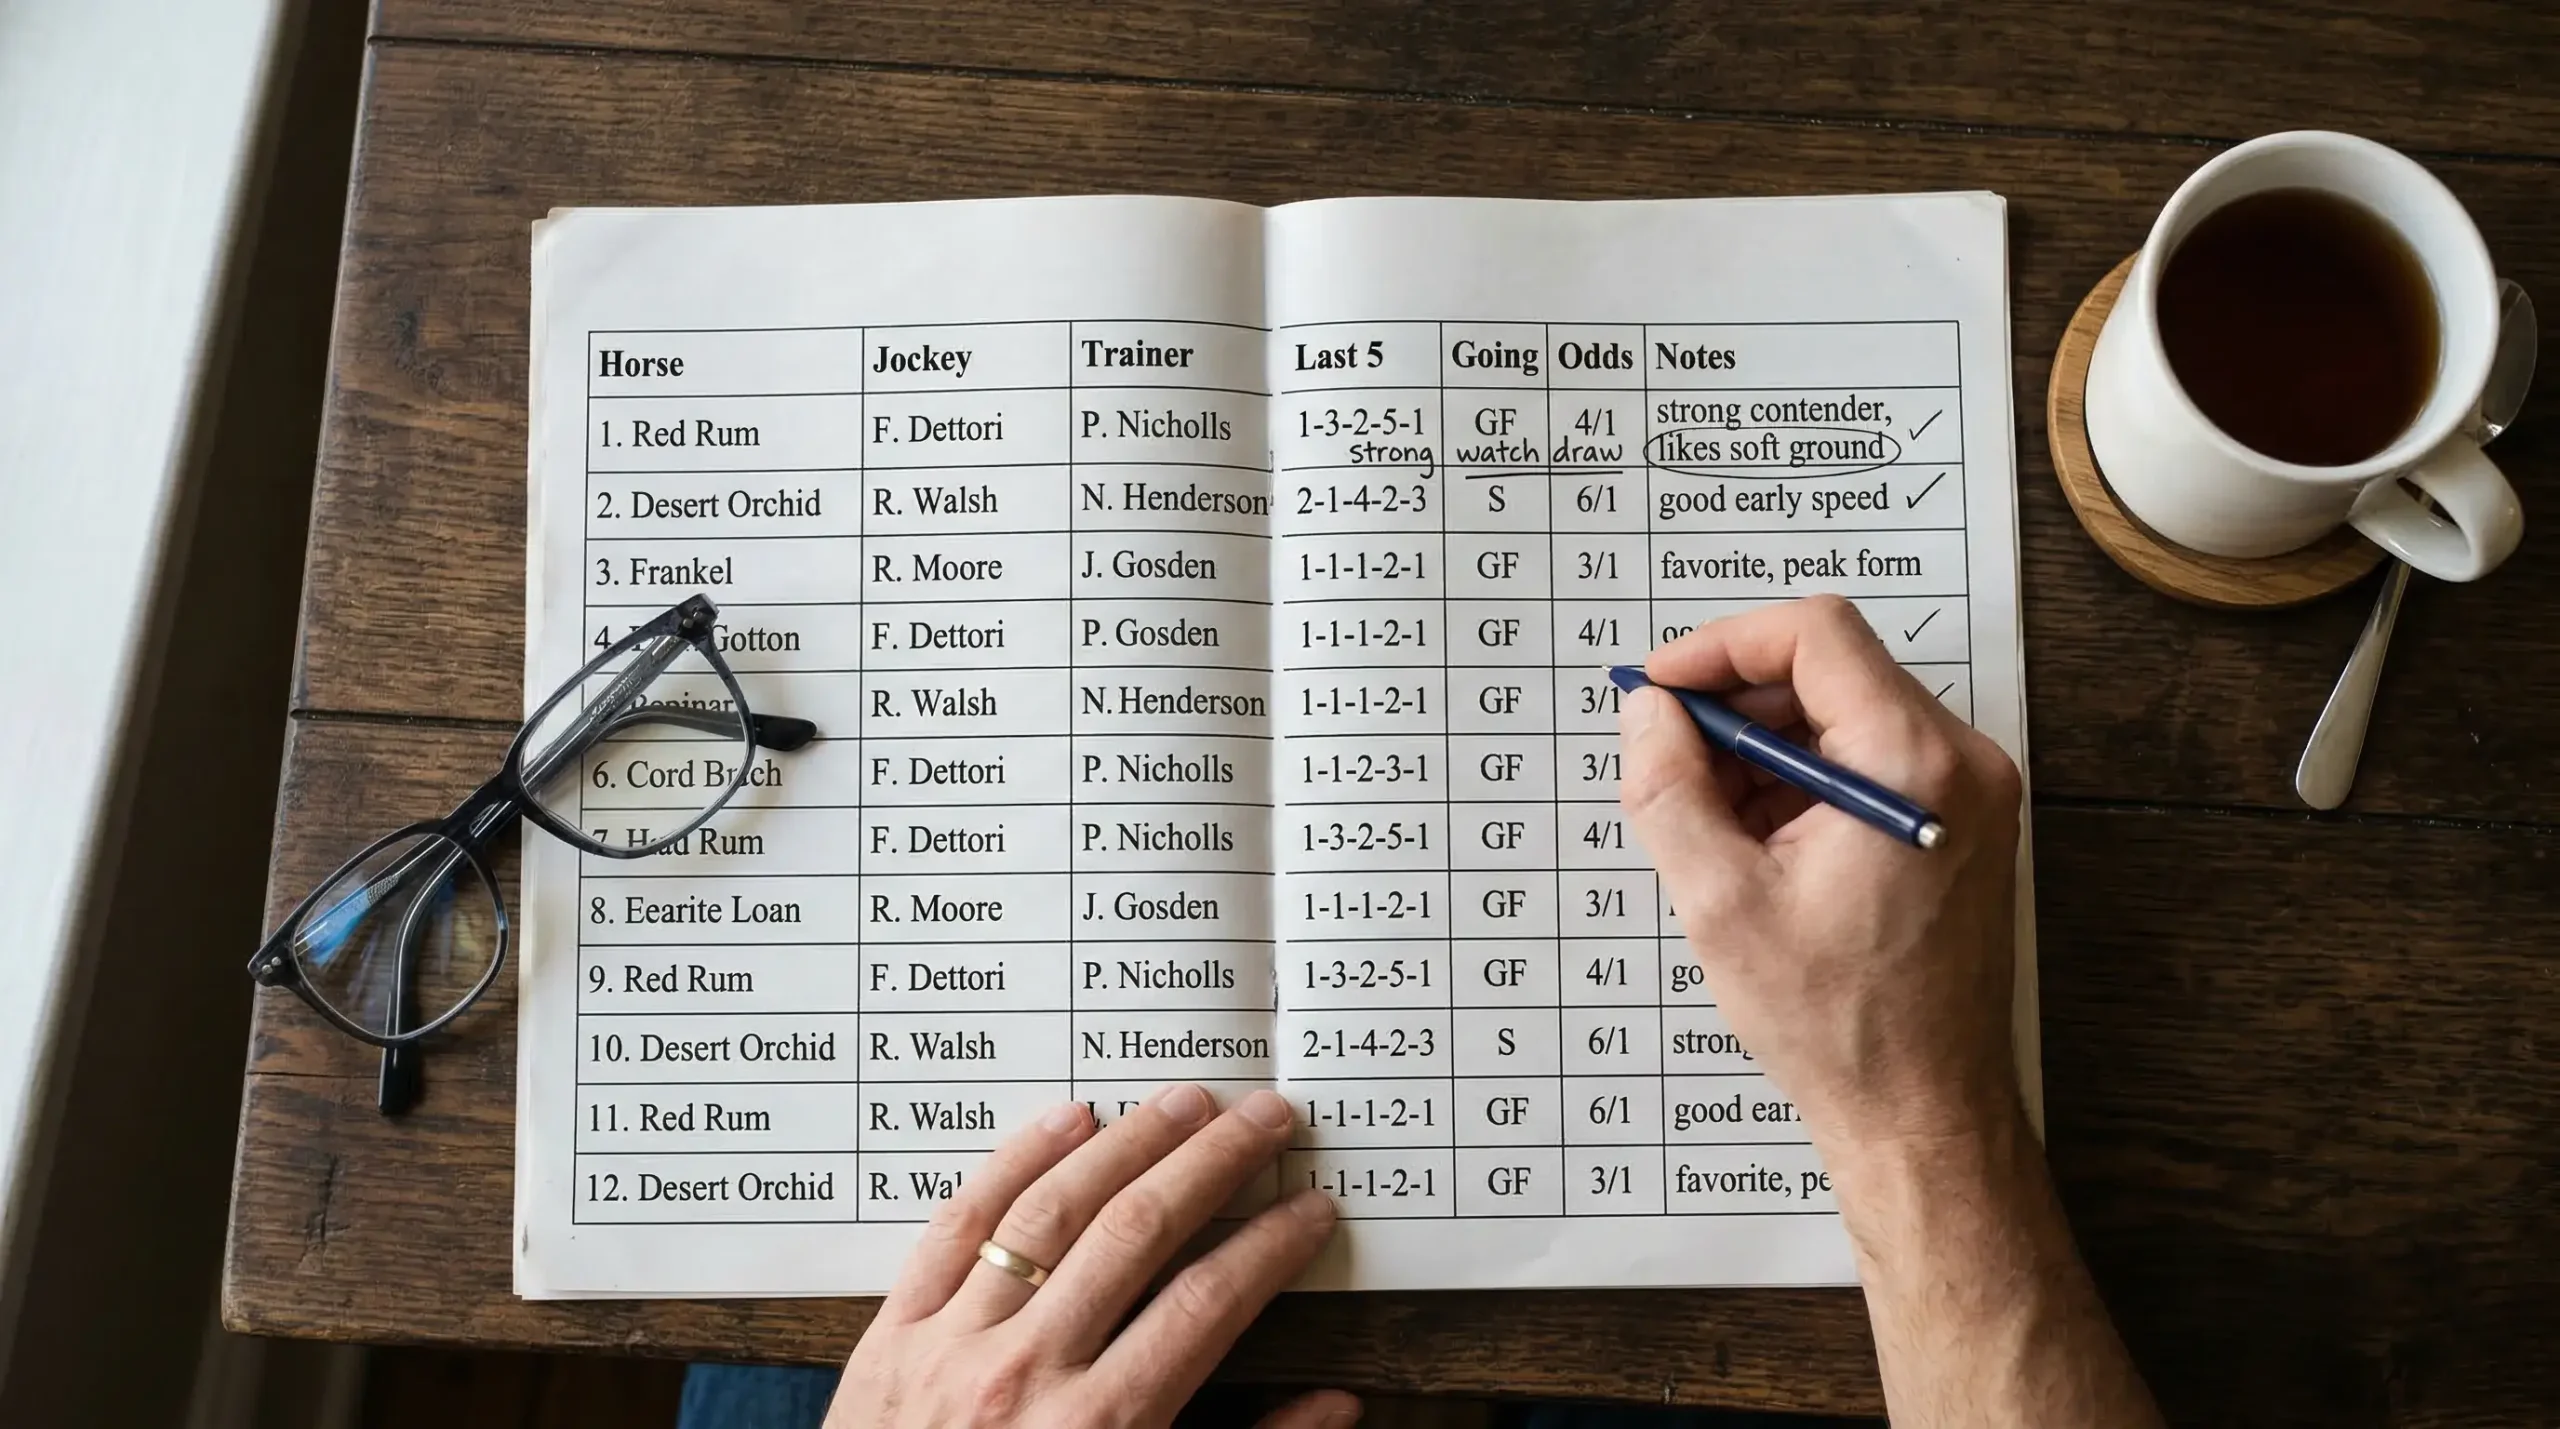 Horse Jockey Trainer Last 5 Going Odds Notes
1. Red Rum F. Dettori P. Nicholls 1-3-2-5-1 GF 4/1 strong contender,
strong watch draw likes soft ground
2. Desert Orchid R. Walsh N. Henderson 2-1-4-2-3 S 6/1 good early speed
3. Frankel R. Moore J. Gosden 1-1-1-2-1 GF 3/1 favorite, peak form
4. Gotton F. Dettori P. Gosden 1-1-1-2-1 GF 4/1
R. Walsh N. Henderson 1-1-1-2-1 GF 3/1
6. Cord F. Dettori P. Nicholls 1-1-2-3-1 GF 3/1
7. Rum F. Dettori P. Nicholls 1-3-2-5-1 GF 4/1
8. Eearite Loan R. Moore J. Gosden 1-1-1-2-1 GF 3/1
9. Red Rum F. Dettori P. Nicholls 1-3-2-5-1 GF 4/1 go
10. Desert Orchid R. Walsh N. Henderson 2-1-4-2-3 S 6/1 strong
11. Red Rum R. Walsh 1-1-1-2-1 GF 6/1 good ear
12. Desert Orchid R. Wal 1-1-1-2-1 GF 3/1 favorite, pe